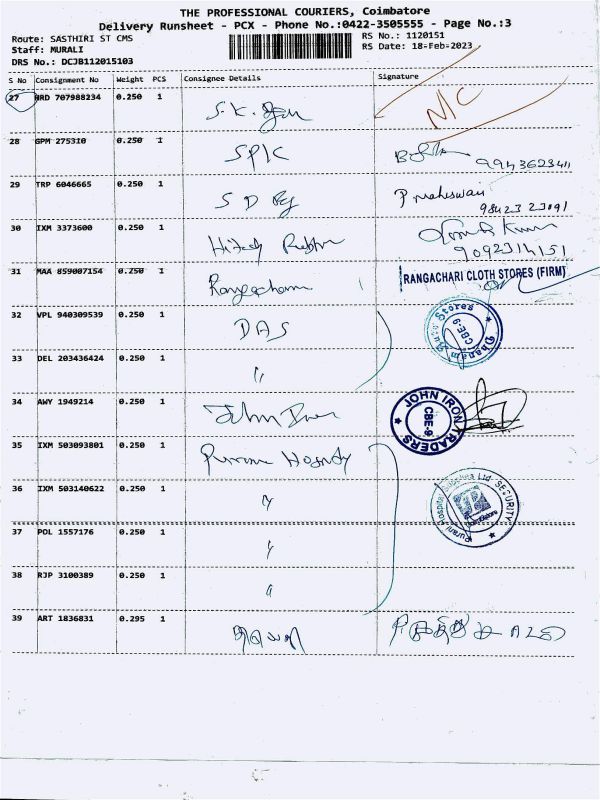 THE PROFESSIONAL COURIERS, Coimbatore
Delivery Runsheet - PCX - Phone No.:0422-3505555 - Page No.:3
Route: SASTHIRI ST CMS
Staff: MURALI
DRS No.: DCJB112015103
RS No.: 1120151
RS Date: 18-Feb-2023
S No Consignment No Weight PCS Consignee Details Signature
27 HRD 707988234 0.250 1 S.K. N/C
28 GPM 275310 0.250 1 SPIC 9943623411
29 TRP 6046665 0.250 1 S D P maheswari
98423 23091
30 IXM 3373600 0.250 1 Kumar
9092314151
31 MAA 859007154 0.250 1 Rangachari RANGACHARI CLOTH STORES (FIRM)
32 VPL 940309539 0.250 1 DAS Dhanam Auto Stores CBE-9
33 DEL 203436424 0.250 1 "
34 AWY 1949214 0.250 1 John JOHN IRON TRADERS CBE-9
35 IXM 503093801 0.250 1
36 IXM 503140622 0.250 1 " Purani Hospital Supplies Ltd. SECURITY Coimbatore
37 POL 1557176 0.250 1 "
38 RJP 3100389 0.250 1 "
39 ART 1836831 0.295 1